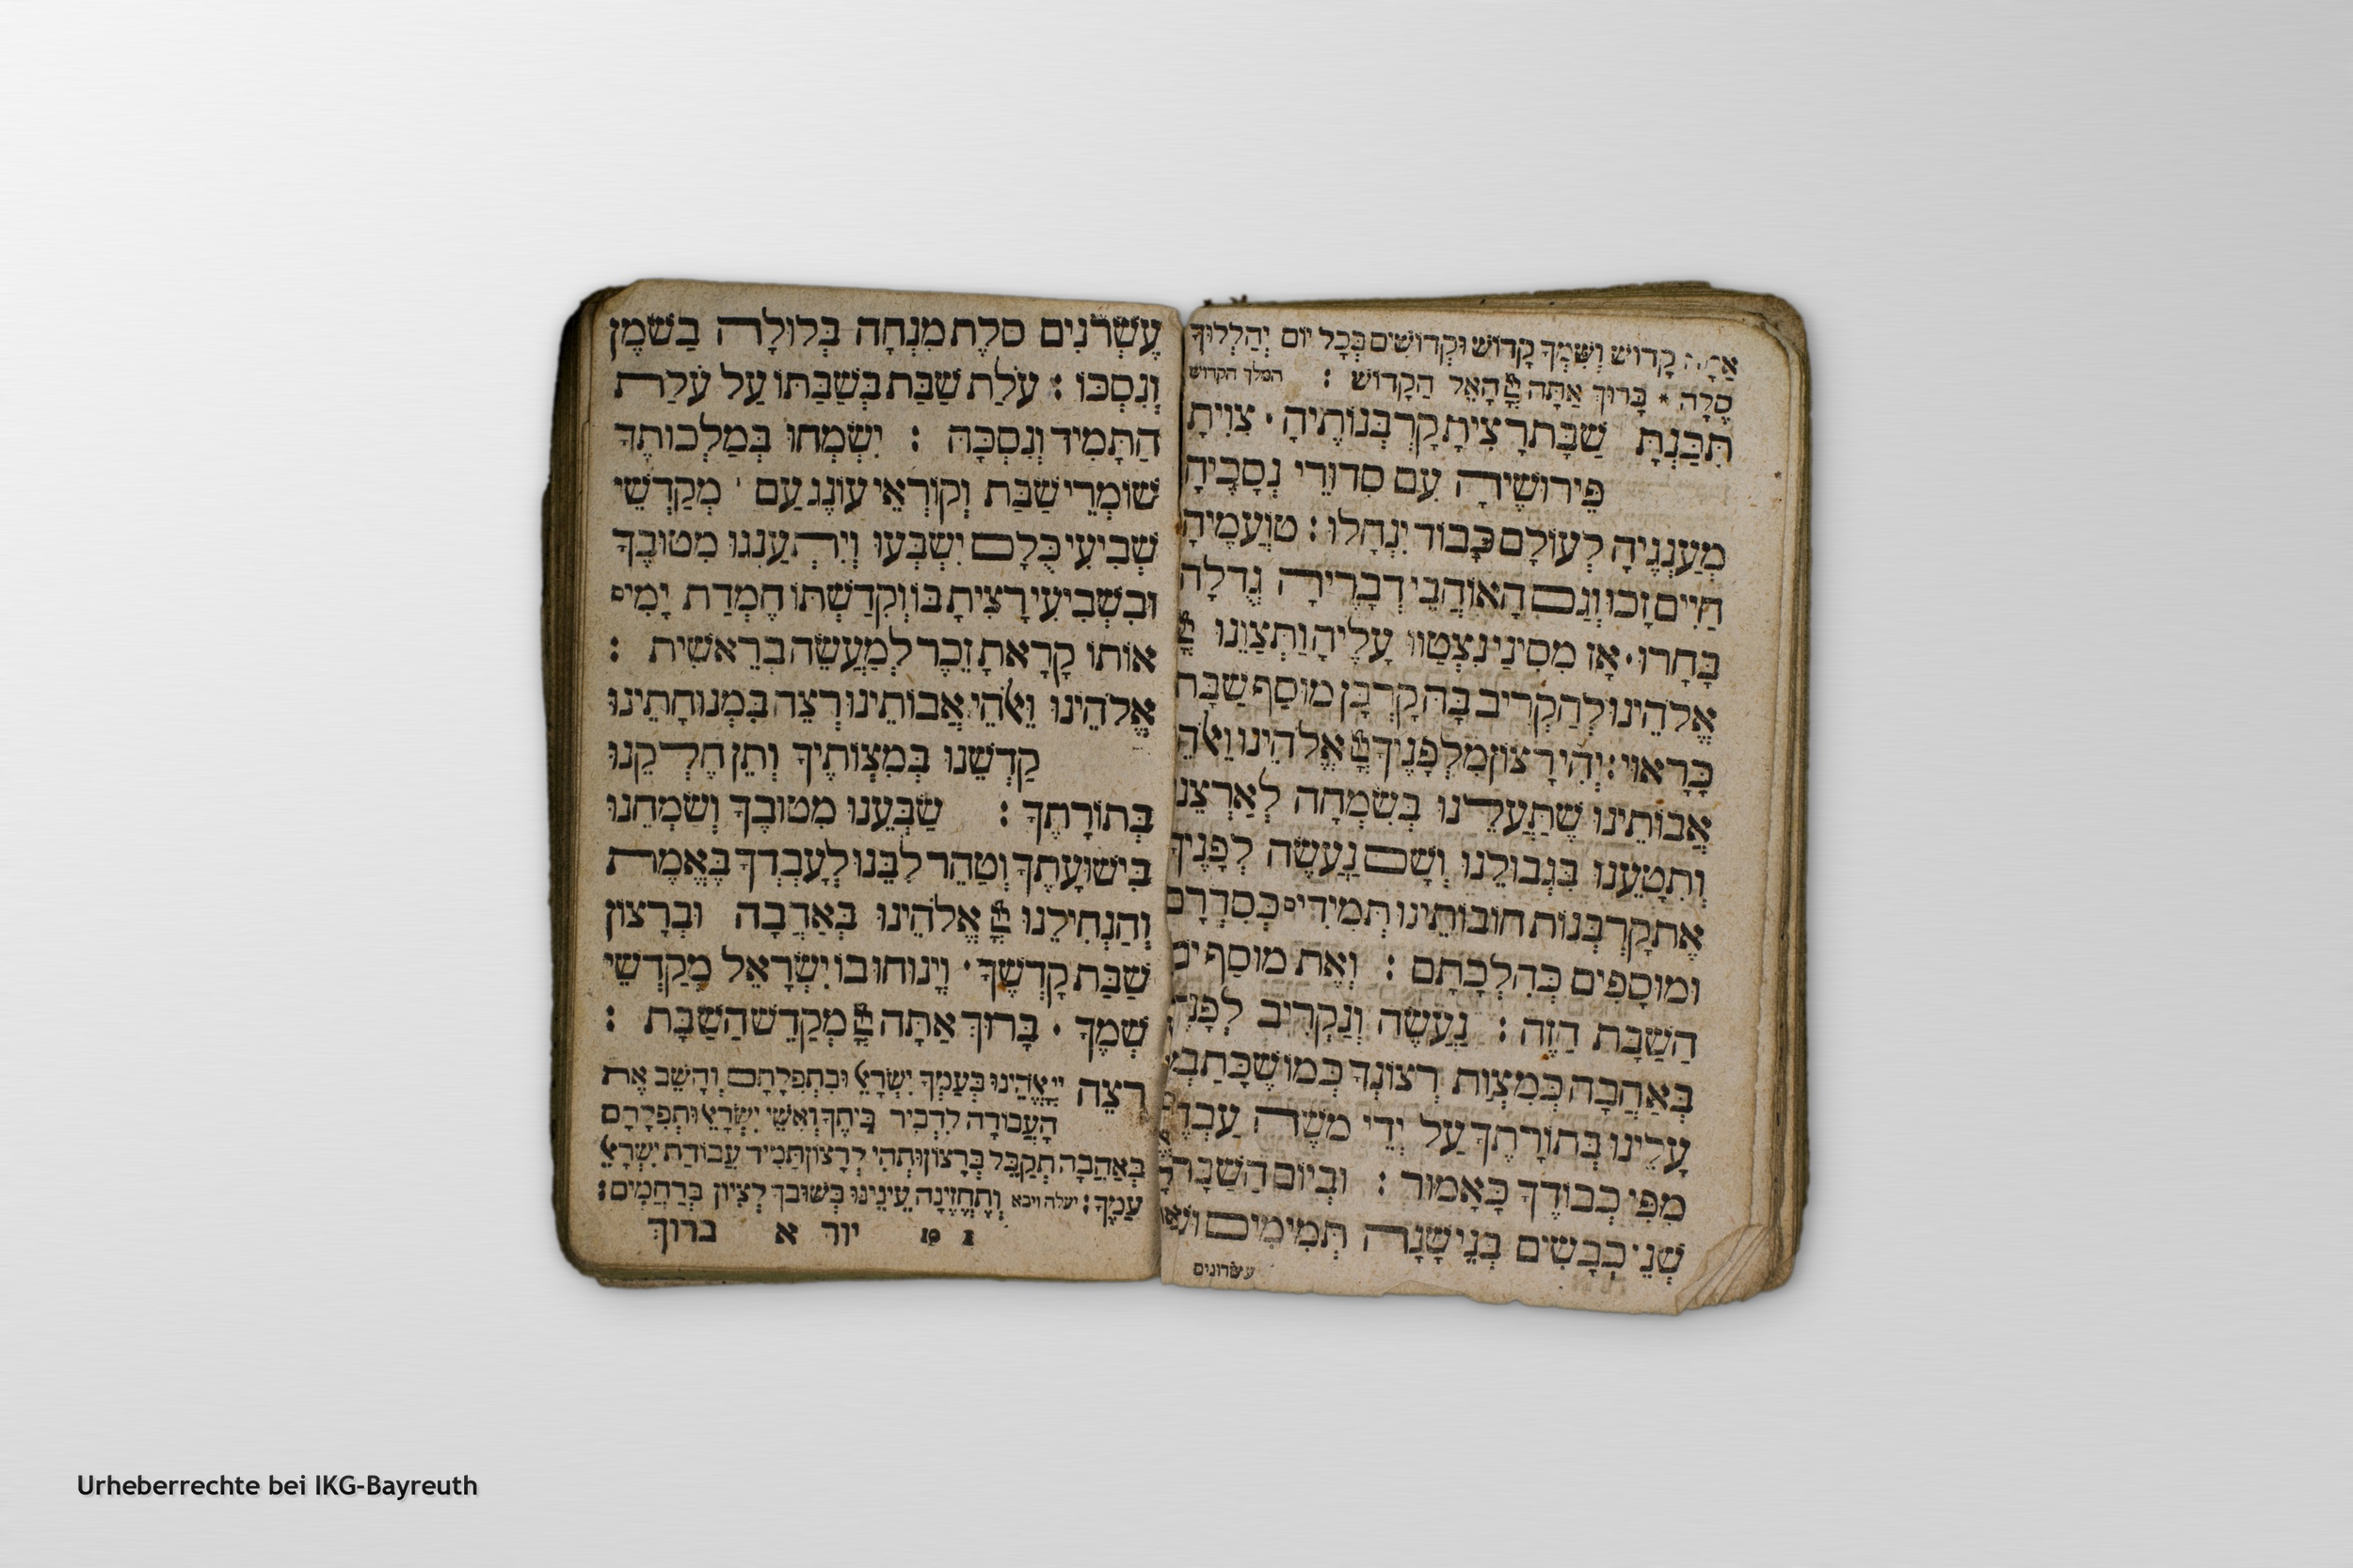 אַתָּה קָדוֹשׁ וְשִׁמְךָ קָדוֹשׁ וּקְדוֹשִׁים בְּכָל יוֹם יְהַלְלוּךָ
סֶלָה * בָּרוּךְ אַתָּה יְיָ הָאֵל הַקָּדוֹשׁ : המלך הקדוש
תִּכַּנְתָּ שַׁבָּת רָצִיתָ קָרְבְּנוֹתֶיהָ · צִוִּיתָ
פֵּירוּשֶׁיהָ עִם סִדּוּרֵי נְסָכֶיהָ
מְעַנְּגֶיהָ לְעוֹלָם כָּבוֹד יִנְחָלוּ : טוֹעֲמֶיהָ
חַיִּים זָכוּ וְגַם הָאוֹהֲבִי דְבָרֶיהָ גְּדֻלָּה
בָּחָרוּ · אָז מִסִּינַי נִצְטַוּוּ עָלֶיהָ וַתְּצַוֵּנוּ יְיָ
אֱלֹהֵינוּ לְהַקְרִיב בָּהּ קָרְבַּן מוּסַף שַׁבָּת
כָּרָאוּי : יְהִי רָצוֹן מִלְּפָנֶיךָ יְיָ אֱלֹהֵינוּ וֵאלֹהֵי
אֲבוֹתֵינוּ שֶׁתַּעֲלֵינוּ בְּשִׂמְחָה לְאַרְצֵנוּ
וְתִטָּעֵנוּ בִּגְבוּלֵנוּ וְשָׁם נַעֲשֶׂה לְפָנֶיךָ
אֶת קָרְבְּנוֹת חוֹבוֹתֵינוּ תְּמִידִים כְּסִדְרָם
וּמוּסָפִים כְּהִלְכָתָם : וְאֶת מוּסַף יוֹם
הַשַּׁבָּת הַזֶּה : נַעֲשֶׂה וְנַקְרִיב לְפָנֶיךָ
בְּאַהֲבָה כְּמִצְוַת רְצוֹנְךָ כְּמוֹ שֶׁכָּתַבְתָּ
עָלֵינוּ בְּתוֹרָתֶךָ עַל יְדֵי מֹשֶׁה עַבְדֶּךָ
מִפִּי כְבוֹדֶךָ כָּאָמוּר : וּבְיוֹם הַשַּׁבָּת
שְׁנֵי כְבָשִׂים בְּנֵי שָׁנָה תְּמִימִם וּשְׁנֵי
עשרונים
עֶשְׂרֹנִים סֹלֶת מִנְחָה בְּלוּלָה בַשֶּׁמֶן
וְנִסְכּוֹ : עֹלַת שַׁבַּת בְּשַׁבַּתּוֹ עַל עֹלַת
הַתָּמִיד וְנִסְכָּהּ : יִשְׂמְחוּ בְּמַלְכוּתְךָ
שׁוֹמְרֵי שַׁבַּת וְקוֹרְאֵי עוֹנֶג עַם · מְקַדְּשֵׁי
שְׁבִיעִי כֻּלָּם יִשְׂבְּעוּ וְיִתְעַנְּגוּ מִטּוּבֶךָ
וּבִשְׁבִיעִי רָצִיתָ בּוֹ וְקִדַּשְׁתּוֹ חֶמְדַּת יָמִים
אוֹתוֹ קָרָאתָ זֵכֶר לְמַעֲשֵׂה בְרֵאשִׁית :
אֱלֹהֵינוּ וֵאלֹהֵי אֲבוֹתֵינוּ רְצֵה בִּמְנוּחָתֵינוּ
קַדְּשֵׁנוּ בְּמִצְוֹתֶיךָ וְתֵן חֶלְקֵנוּ
בְּתוֹרָתֶךָ : שַׂבְּעֵנוּ מִטּוּבֶךָ וְשַׂמְּחֵנוּ
בִּישׁוּעָתֶךָ וְטַהֵר לִבֵּנוּ לְעָבְדְּךָ בֶּאֱמֶת
וְהַנְחִילֵנוּ יְיָ אֱלֹהֵינוּ בְּאַהֲבָה וּבְרָצוֹן
שַׁבַּת קָדְשֶׁךָ · וְיָנוּחוּ בוֹ יִשְׂרָאֵל מְקַדְּשֵׁי
שְׁמֶךָ · בָּרוּךְ אַתָּה יְיָ מְקַדֵּשׁ הַשַּׁבָּת :
רְצֵה יְיָ אֱלֹהֵינוּ בְּעַמְּךָ יִשְׂרָאֵל וּבִתְפִלָּתָם וְהָשֵׁב אֶת
הָעֲבוֹדָה לִדְבִיר בֵּיתֶךָ וְאִשֵּׁי יִשְׂרָאֵל וּתְפִלָּתָם
בְּאַהֲבָה תְקַבֵּל בְּרָצוֹן וּתְהִי לְרָצוֹן תָּמִיד עֲבוֹדַת יִשְׂרָאֵל
עַמֶּךָ : יעלה ויבא וְתֶחֱזֶינָה עֵינֵינוּ בְּשׁוּבְךָ לְצִיּוֹן בְּרַחֲמִים :
יור א ברוך
Urheberrechte bei IKG-Bayreuth